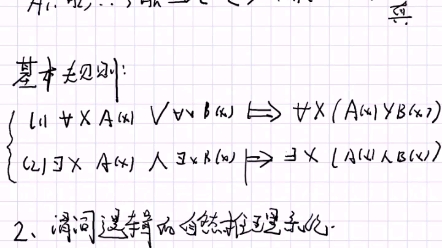 基本规则:
(1) ∀x A(x) ∨ ∀x B(x) ⟹ ∀x (A(x) ∨ B(x))
(2) ∃x A(x) ∧ ∃x B(x) ⟹ ∃x (A(x) ∧ B(x))
2、谓词逻辑的自然推理系统.